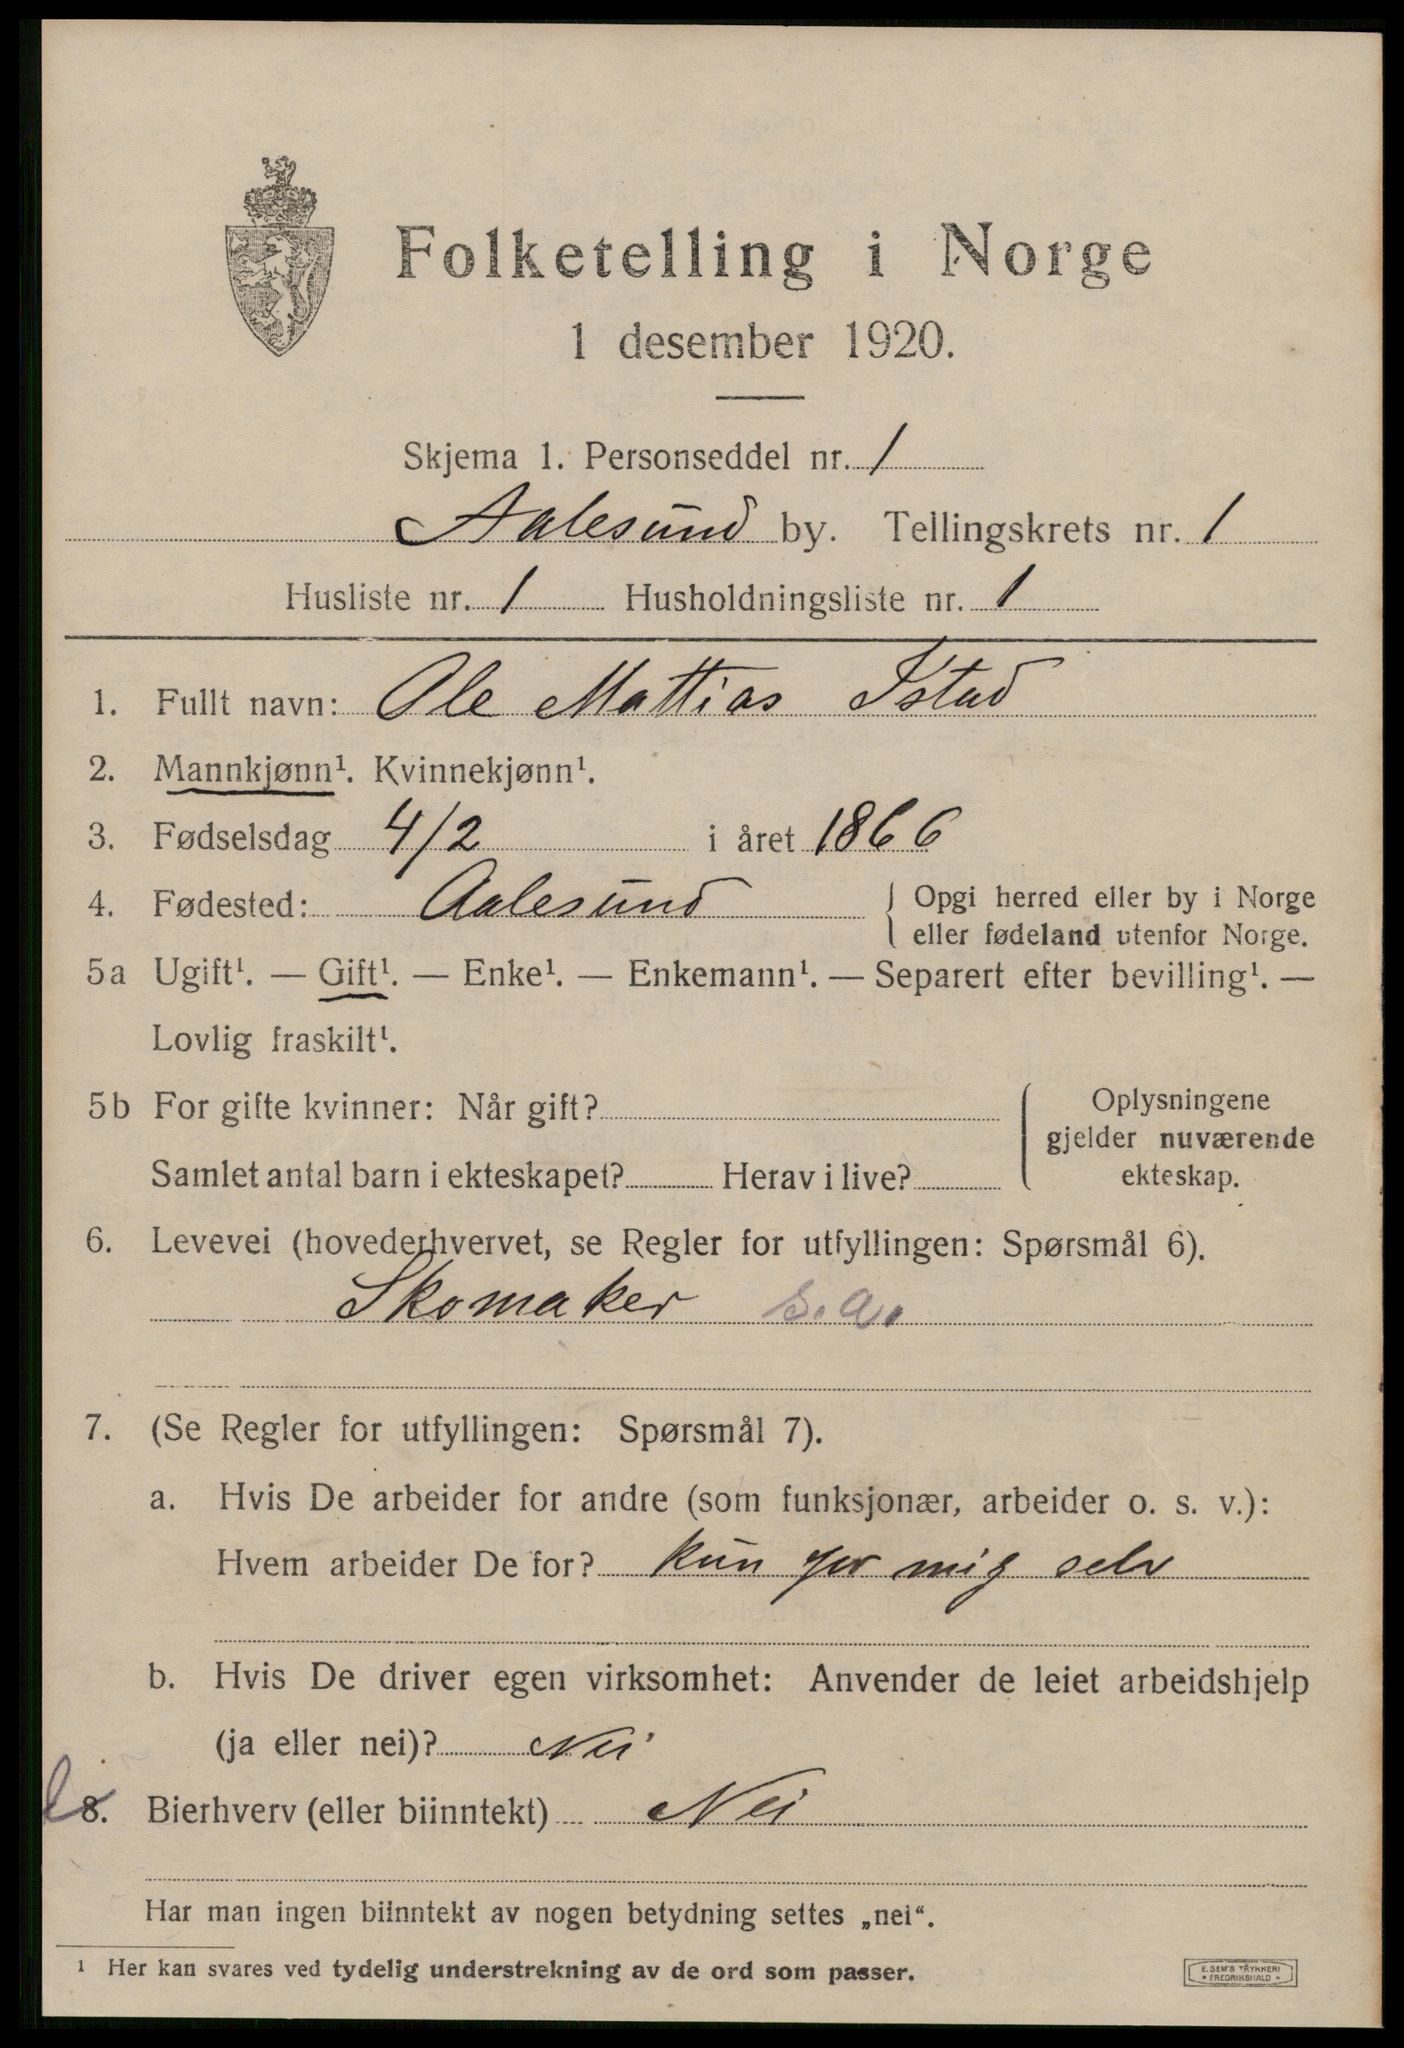 Folketelling i Norge
1 desember 1920.
Skjema 1. Personseddel nr. 1
Aalesund by. Tellingskrets nr. 1
Husliste nr. 1 Husholdningsliste nr. 1
1. Fullt navn: Ole Mattias Istad
2. Mannkjønn¹. Kvinnekjønn¹.
3. Fødselsdag 4/2 i året 1866
4. Fødested: Aalesund { Opgi herred eller by i Norge
eller fødeland utenfor Norge.
5a Ugift¹. — Gift¹. — Enke¹. — Enkemann¹. — Separert efter bevilling¹. —
Lovlig fraskilt¹.
5b For gifte kvinner: Når gift?
Samlet antal barn i ekteskapet? Herav i live?
Oplysningene
gjelder nuværende
ekteskap.
6. Levevei (hovederhvervet, se Regler for utfyllingen: Spørsmål 6).
Skomaker s.a.
7. (Se Regler for utfyllingen: Spørsmål 7).
a. Hvis De arbeider for andre (som funksjonær, arbeider o. s. v.):
Hvem arbeider De for? kun for mig selv
b. Hvis De driver egen virksomhet: Anvender de leiet arbeidshjelp
(ja eller nei)? Nei
8. Bierhverv (eller biinntekt) Nei
Har man ingen biinntekt av nogen betydning settes „nei“.
¹ Her kan svares ved tydelig understrekning av de ord som passer.
E. SEM'S TRYKKERI
FREDRIKSHALD